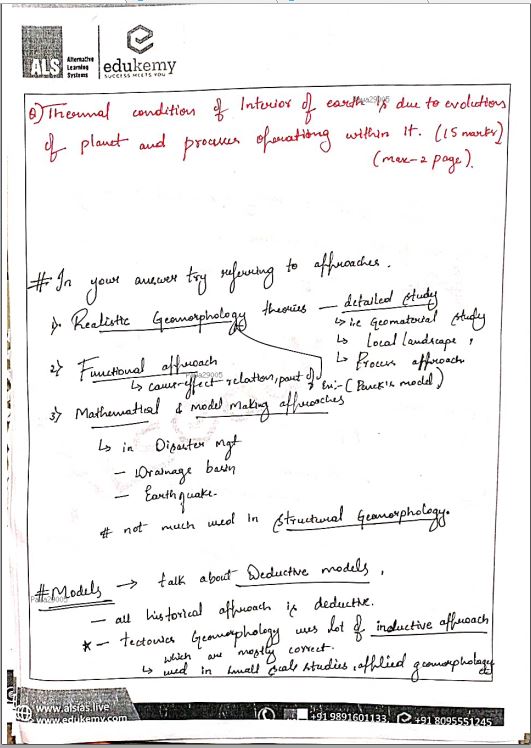 ALS
Alternative
Learning
Systems
edukemy
SUCCESS MEETS YOU
Q) Thermal condition of Interior of earth is due to evolution
of planet and process operating within it. (15 marks)
(max-2 page).
# In your answer try referring to approaches.
1) Realistic Geomorphology theories — detailed study
↳ i.e Geomaterial study
↳ Local landscape,
↳ Process approach
2) Functional approach
↳ cause-effect relation, part of
En:- (Penck's model)
3) Mathematical & model Making approaches
↳ in Disaster mgt
— Drainage basin
— Earthquake.
# not much used in Structural Geomorphology.
# Models → talk about Deductive models,
— all historical approach is deductive.
* — tectonics Geomorphology uses lot of inductive approach
which are mostly correct.
↳ used in small scale studies, applied geomorphology
etc
www.alsias.live
www.edukemy.com
+91 9891601133,
+91 8095551245